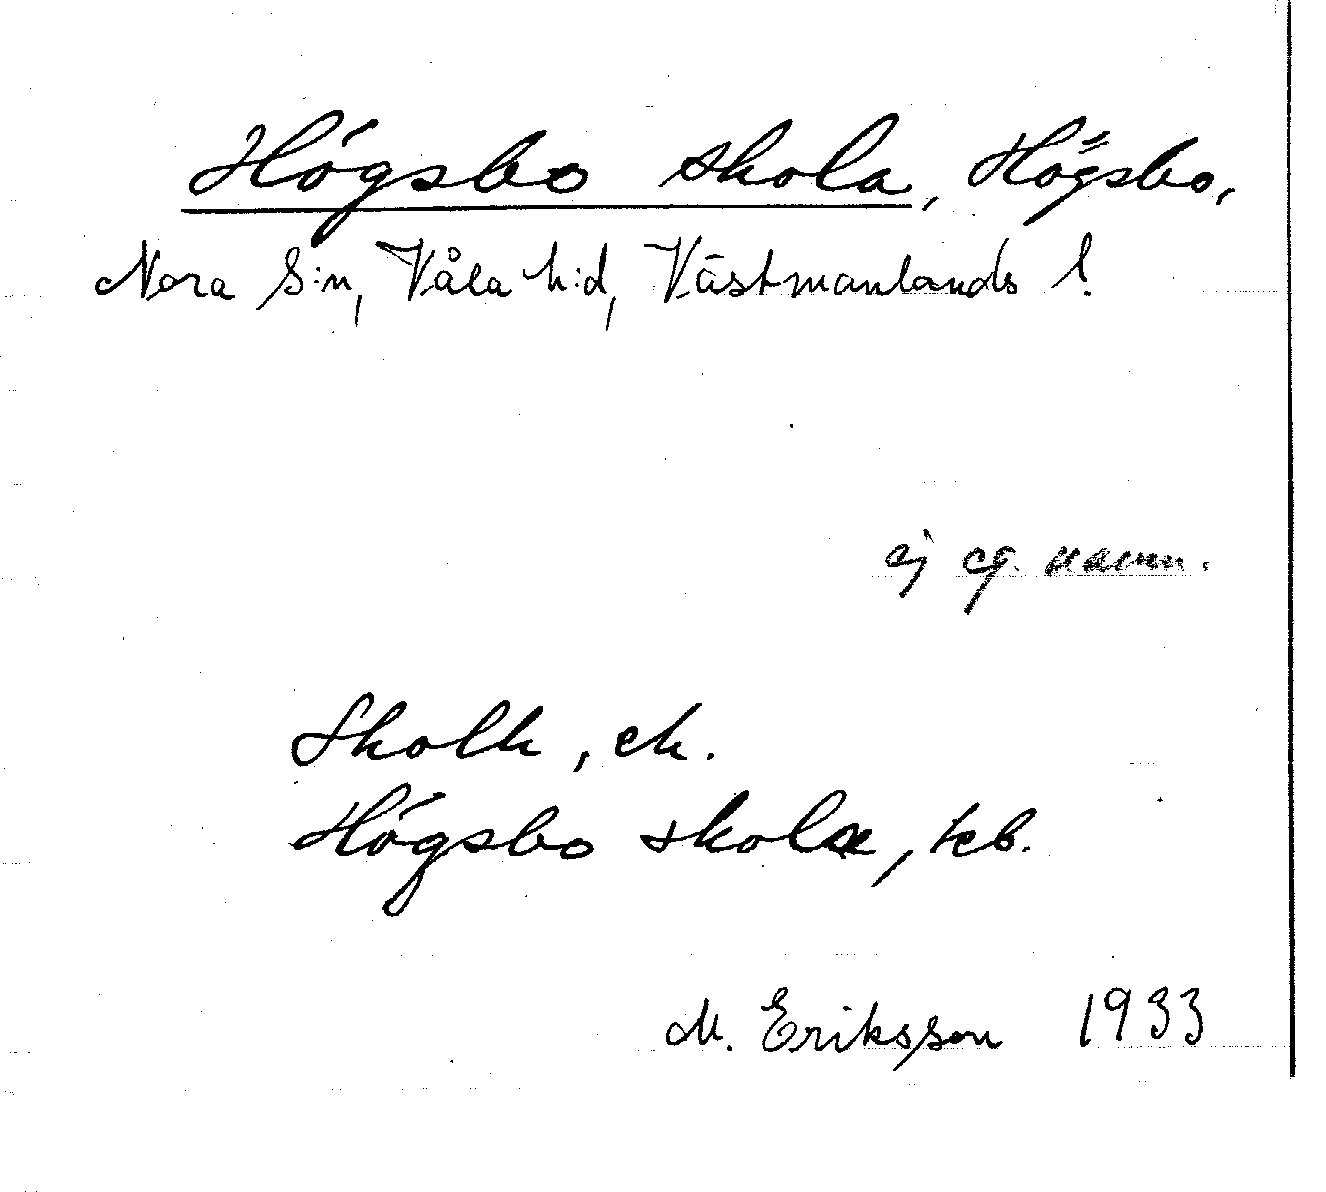 Högsbo skola, Högsbo,
Nora S:n, Våla h:d, Västmanlands l.
ej eg. namn.
Skolh, ek.
Högsbo skola, jcb.
M. Eriksson 1933